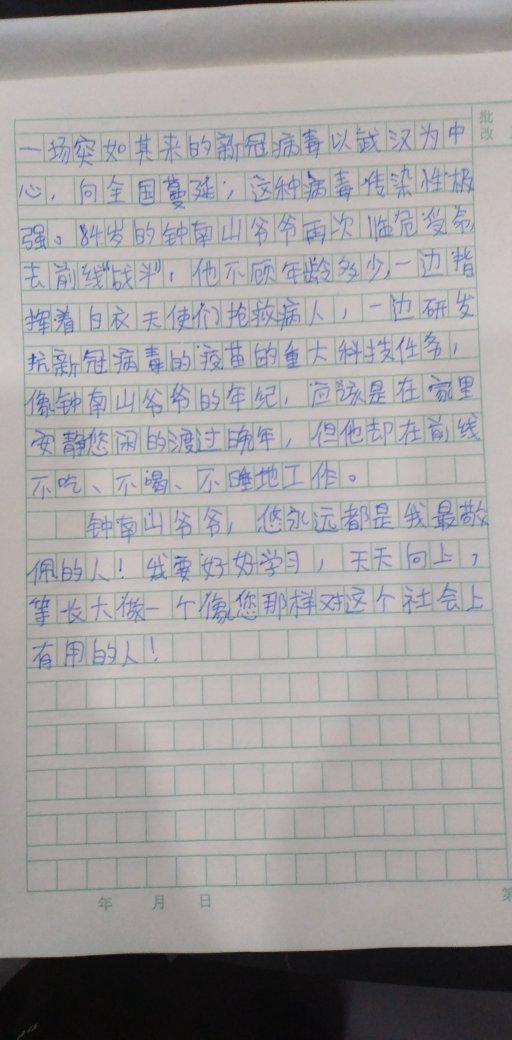 批
改
一场突如其来的新冠病毒以武汉为中
心，向全国蔓延，这种病毒传染性极
强。84岁的钟南山爷爷再次临危受命
去前线"战斗"，他不顾年龄多少，一边指
挥着白衣天使们抢救病人，一边研发
抗新冠病毒的疫苗的重大科技任务，
像钟南山爷爷的年纪，应该是在家里
安静悠闲的渡过晚年，但他却在前线
不吃、不喝、不睡地工作。
钟南山爷爷，您永远都是我最敬
佩的人！我要好好学习，天天向上，
等长大做一个像您那样对这个社会上
有用的人！
年 月 日
第